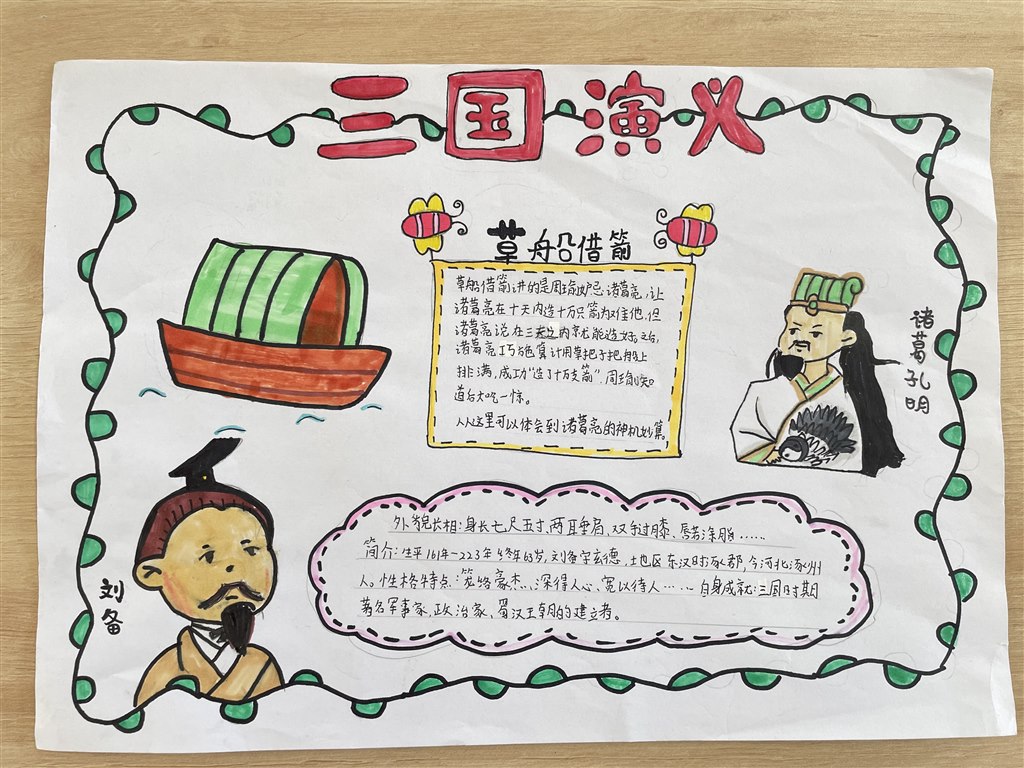 三国演义
草船借箭
草船借箭讲的是周瑜妒忌诸葛亮,让
诸葛亮在十天内造十万只箭为难他,但
诸葛亮说在三天内就能造好之后,
诸葛亮巧施算计用草把子把船上
排满,成功“造了十万支箭”.周瑜知
道后大吃一惊。
从这里可以体会到诸葛亮的神机妙算。
诸葛孔明
刘备
外貌长相:身长七尺五寸,两耳垂肩,双手过膝,唇若涂脂……
简介:生平161年-223年 终年63岁,刘备字玄德,土地区东汉时涿郡,今河北涿州
人。性格特点:笼络豪杰…深得人心、宽以待人…… 自身成就:三国时期
著名军事家,政治家,蜀汉王朝的建立者。